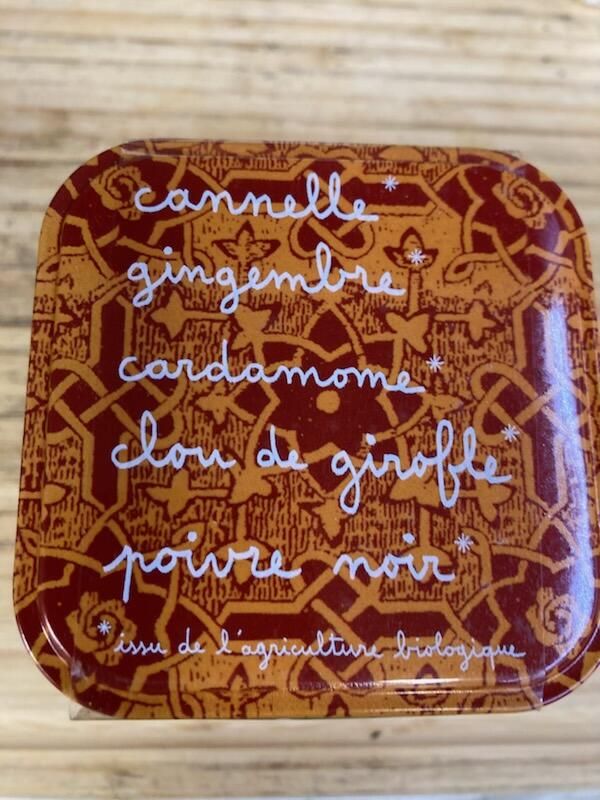 cannelle*
gingembre*
cardamome*
clou de girofle*
poivre noir*
*issu de l'agriculture biologique